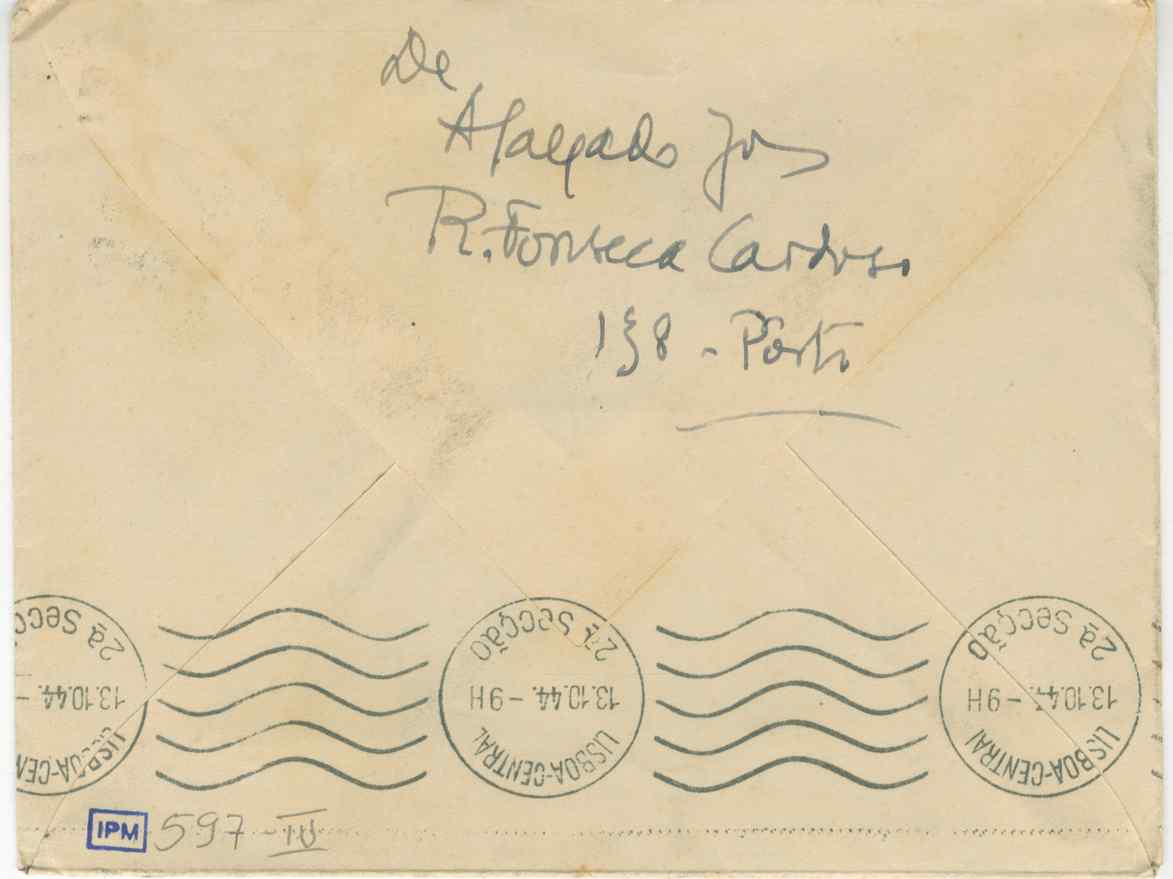 De
R. Fonseca Cardoso
138 - Porto
2ª SECÇ
13.10.44. -
LISBOA-CEN
2ª SECÇÃO
13.10.44. - 9H
LISBOA-CENTRAL
2ª SECÇÃO
13.10.44. - 9H
LISBOA-CENTRAL
IPM 597 -